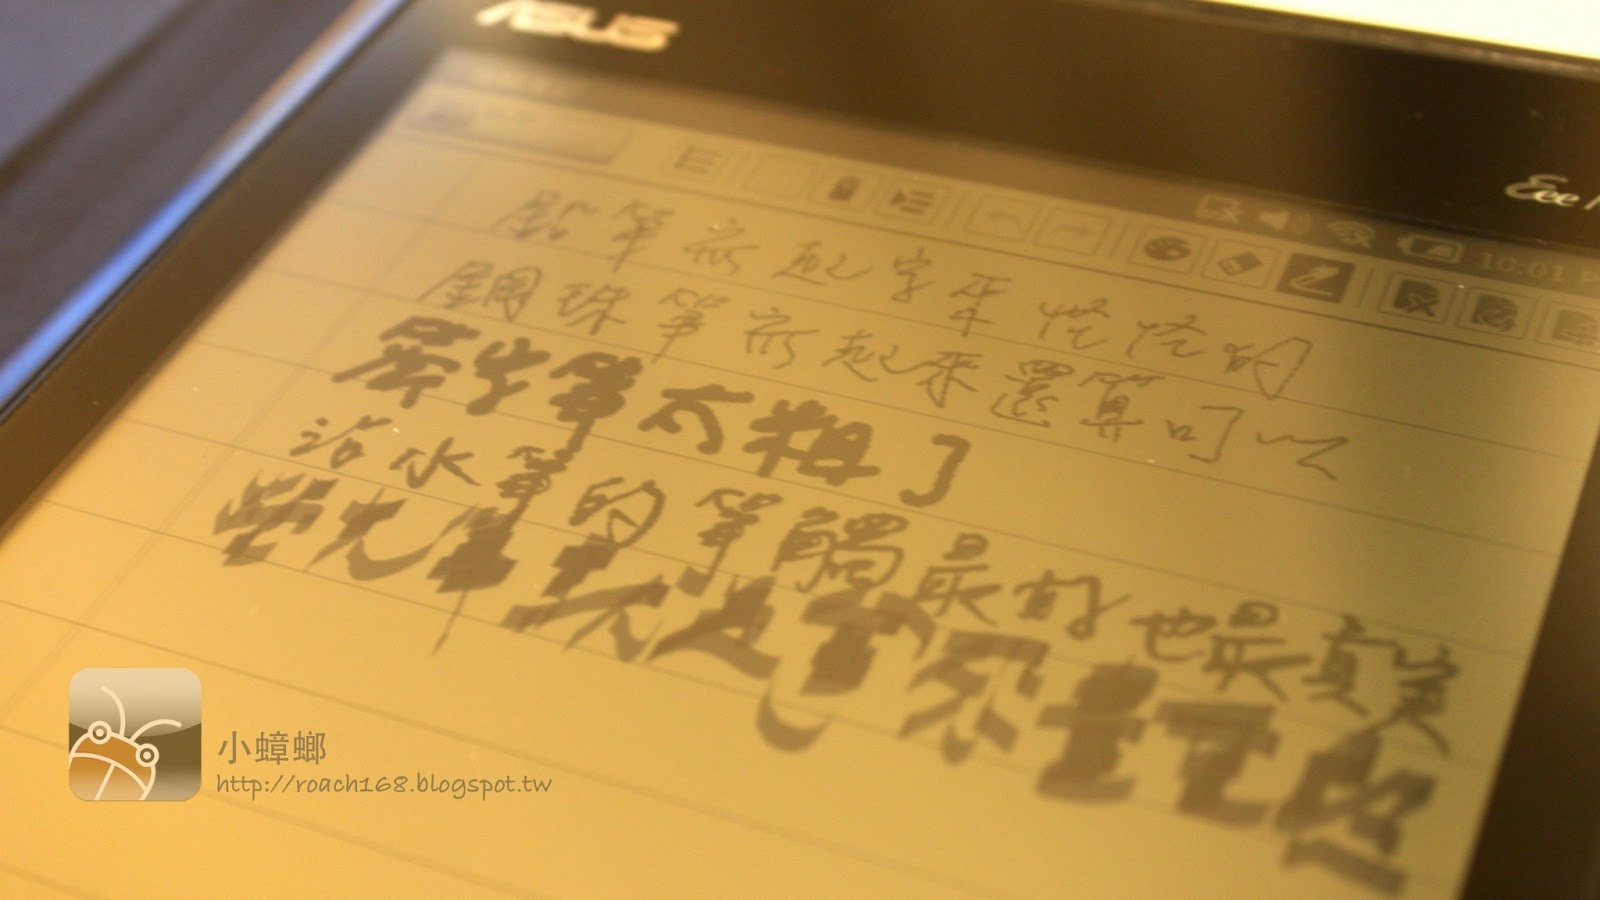 ASUS
Eee
10:01 P
鉛筆寫起字來怪怪的
鋼珠筆寫起來還算可以
簽字筆太粗了
沾水筆的筆觸最好也最真實
螢光筆
小蟑螂
http://roach168.blogspot.tw